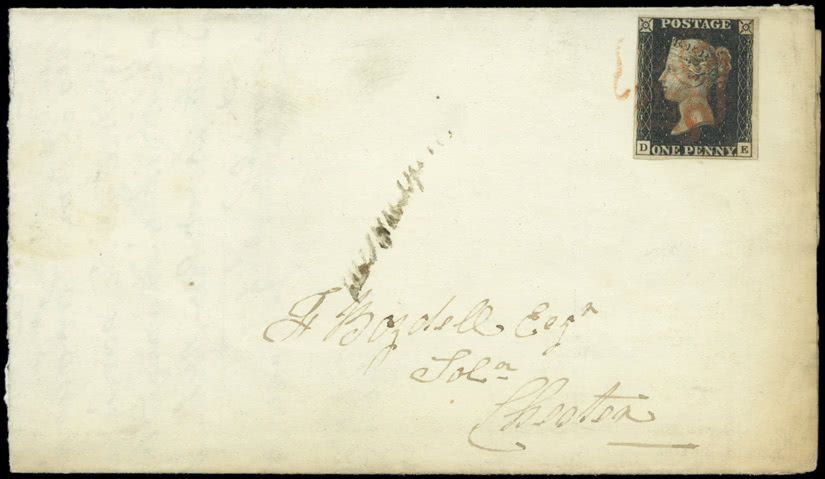 POSTAGE
D ONE PENNY. E
F Boydell Esqr
Solr
Chester